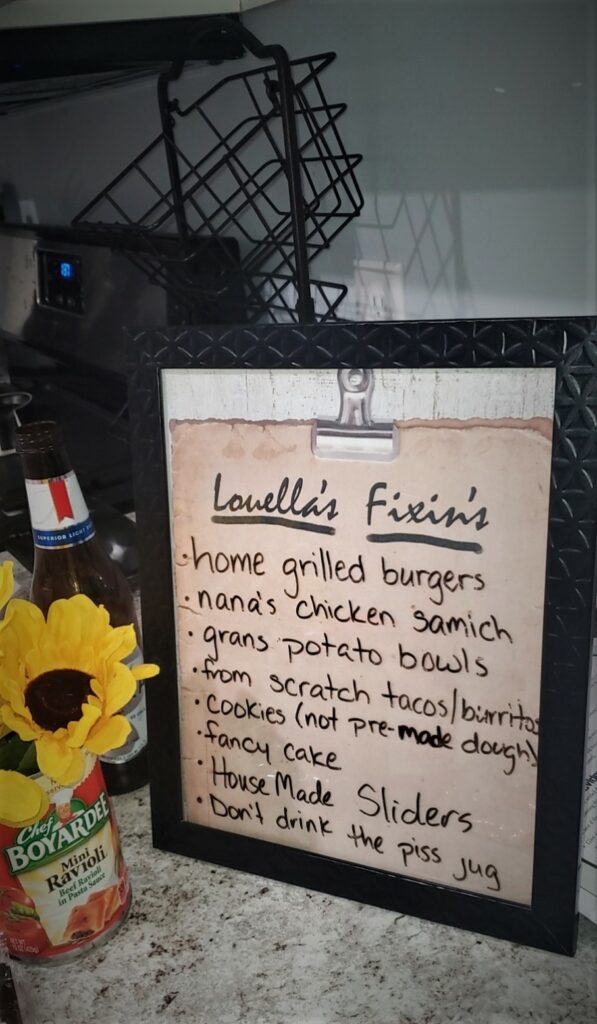 Louella's Fixin's
·home grilled burgers
·nana's chicken samich
·grans potato bowls
·from scratch tacos/burritos
·cookies (not pre-made dough)
·fancy cake
·House Made Sliders
·Don't drink the piss jug
SUPERIOR LIGHT
Chef
BOYARDEE
Mini
Ravioli
Beef Ravioli
in Pasta Sauce